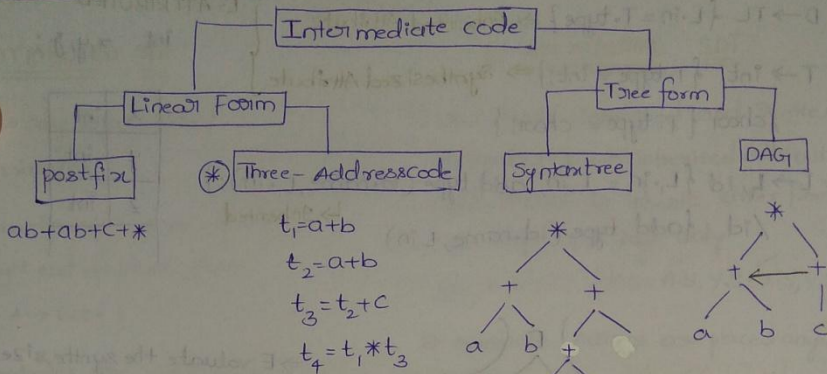 Intermediate code
Linear Form
Tree form
postfix
* Three-Addresscode
Syntaxtree
DAG
ab+ab+c+*
t₁=a+b
t₂=a+b
t₃=t₂+c
t₄=t₁*t₃
*
+ +
a b +
*
+ +
a b c